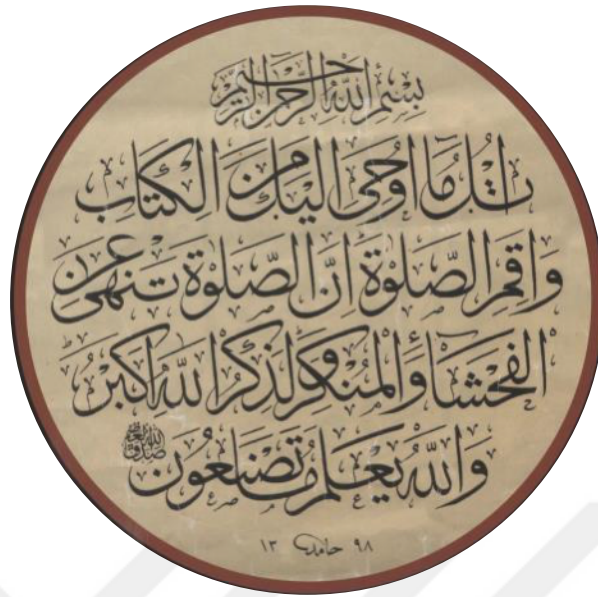 بسم الله الرحمن الرحيم
اتل ما اوحى اليك من الكتاب
واقم الصلوة ان الصلوة تنهى عن
الفحشاء والمنكر ولذكر الله اكبر
والله يعلم ما تصنعون
١٣ حامد ٩٨